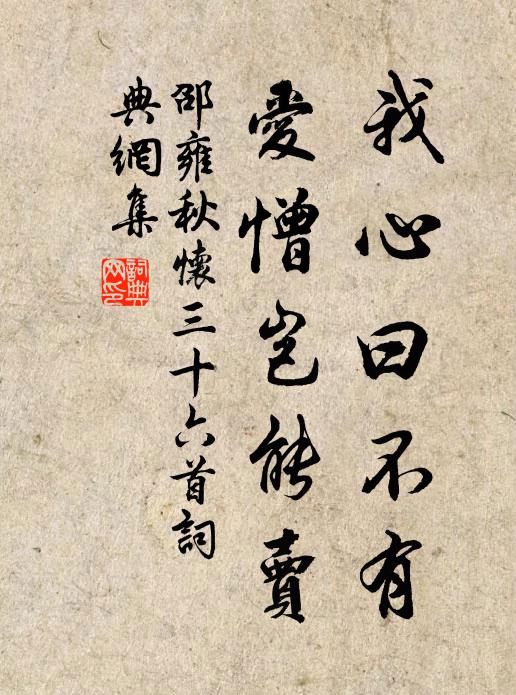 我心曰不有
愛憎豈能賣
邵雍秋懷三十六首詞
典網集
詞典
網印